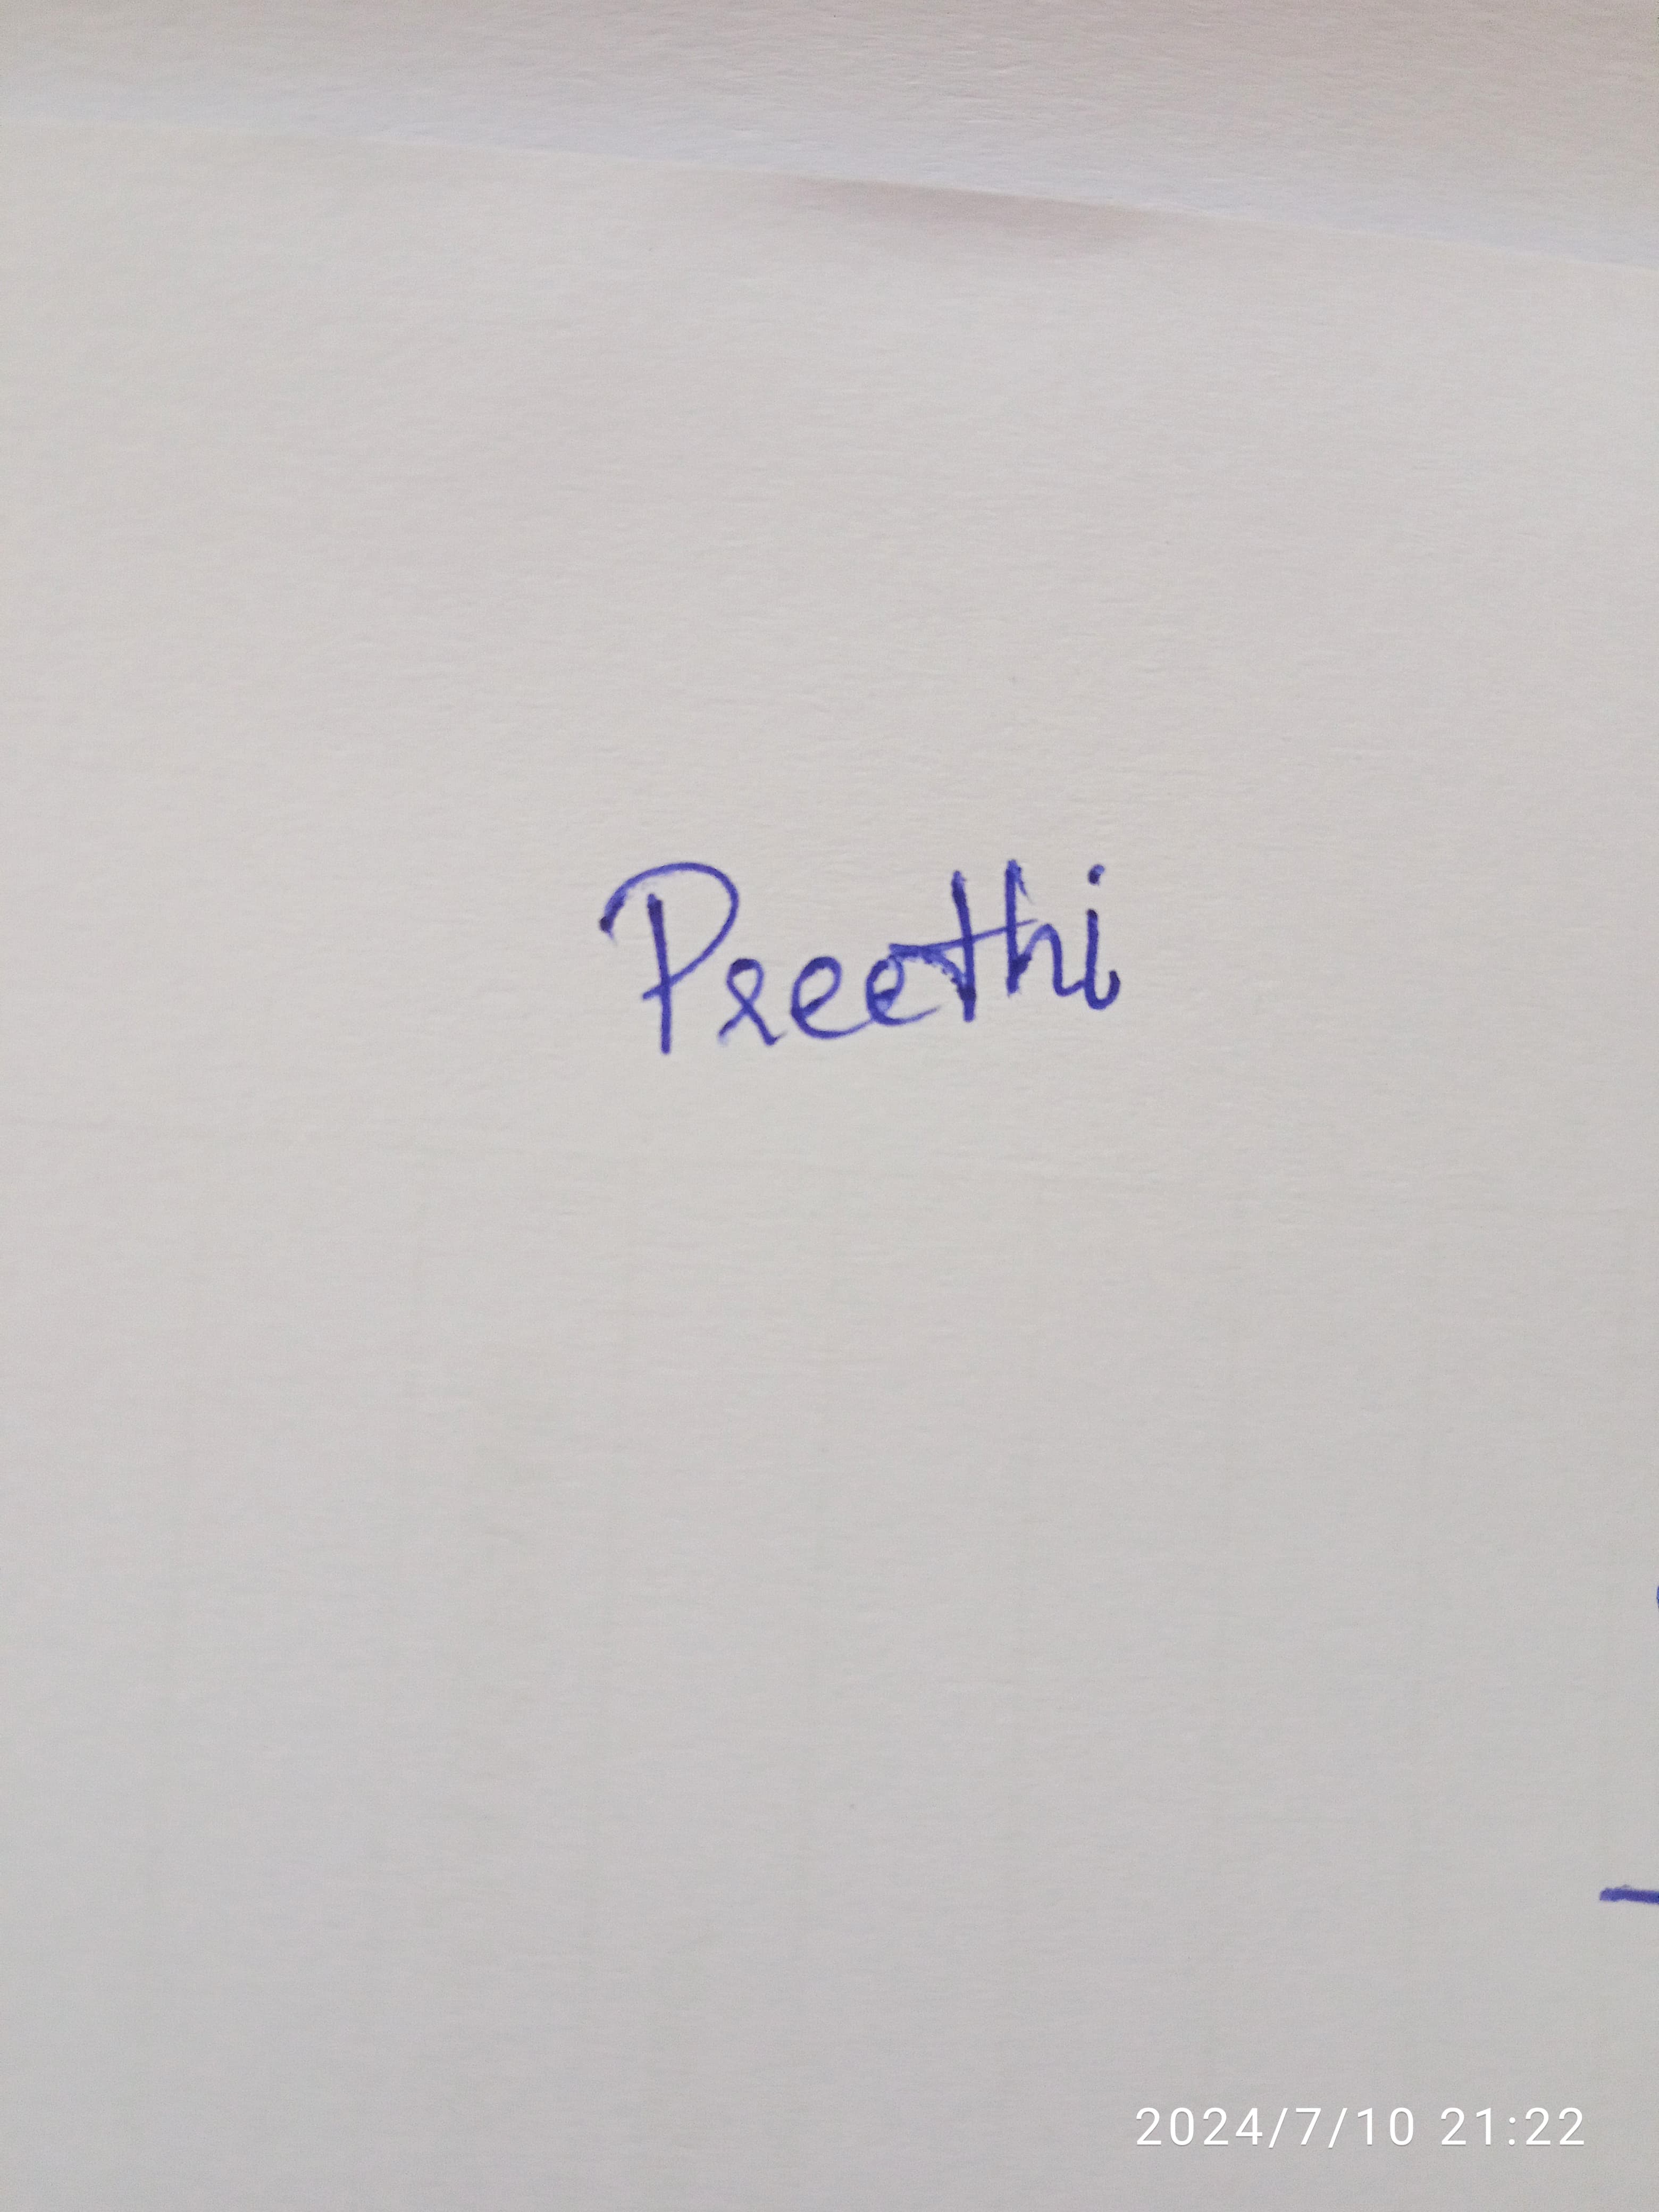 Preethi
2024/7/10 21:22